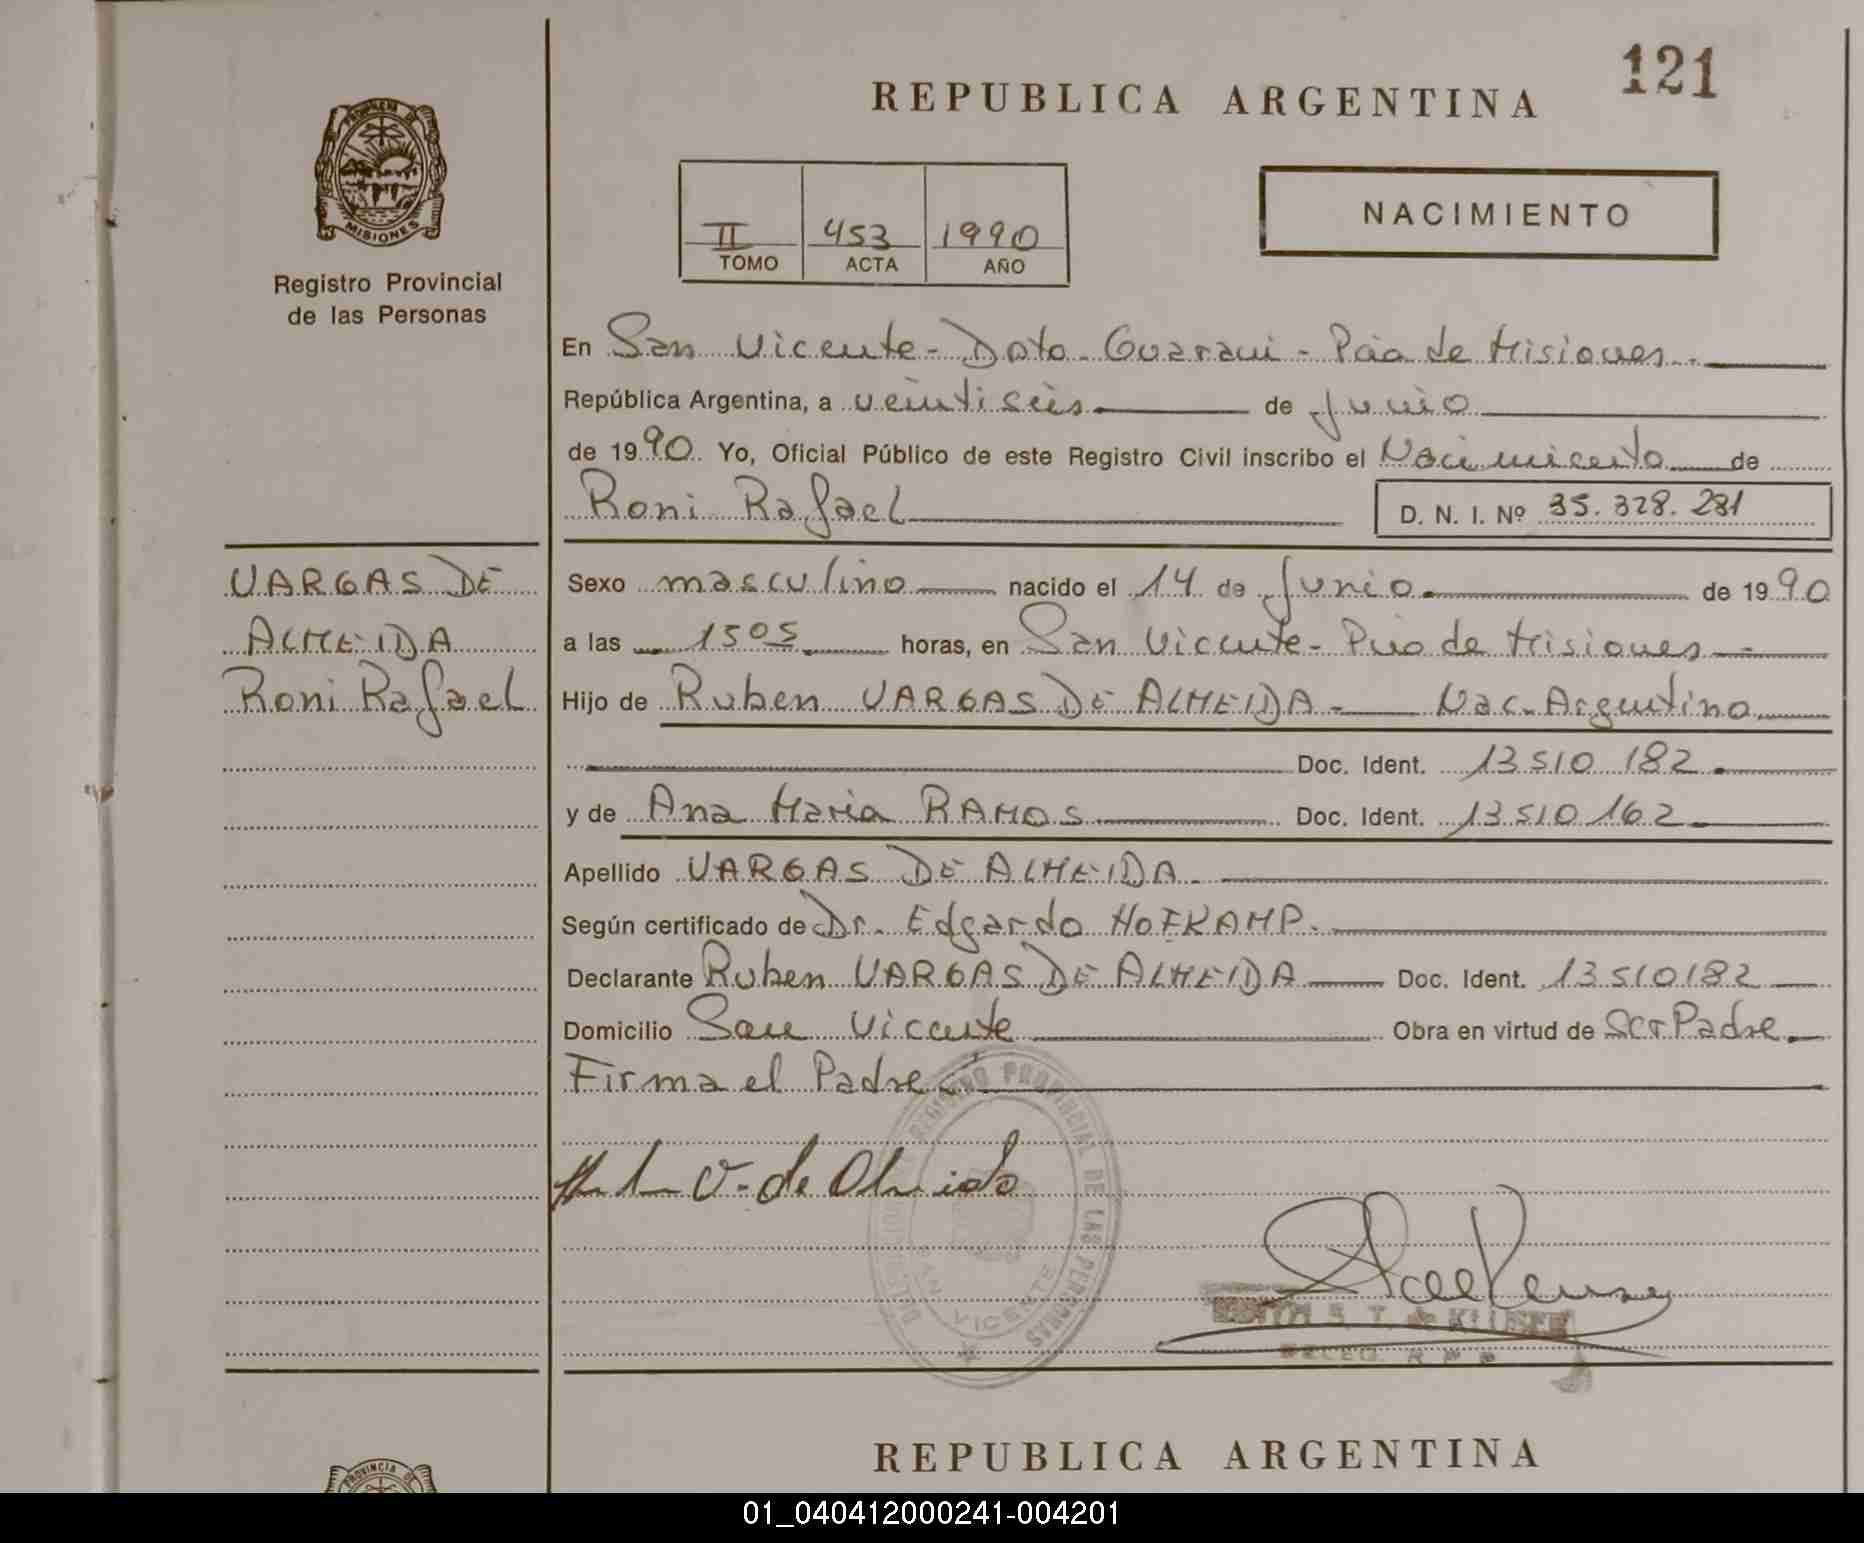 121
REPUBLICA ARGENTINA
PROVINCIA DE
MISIONES
Registro Provincial
de las Personas
II 453 1990
TOMO ACTA AÑO
NACIMIENTO
En San Vicente - Dpto. Guarani - Pcia de Misiones.
República Argentina, a veintiseis de Junio
de 1990 Yo, Oficial Público de este Registro Civil inscribo el Nacimiento de
Roni Rafael D. N. I. Nº 35.328.281
VARGAS DE
ALMEIDA
Roni Rafael
Sexo masculino nacido el 14 de Junio de 1990
a las 1505 horas, en San Vicente - Pcia de Misiones
Hijo de Ruben VARGAS DE ALMEIDA - Nac. Argentino
Doc. Ident. 13510182
y de Ana Maria RAMOS Doc. Ident. 13510162
Apellido VARGAS DE ALMEIDA
Según certificado de Dr. Edgardo HOFKAMP.
Declarante Ruben VARGAS DE ALMEIDA Doc. Ident. 13510182
Domicilio San Vicente Obra en virtud de Ser Padre
Firma el Padre
REGISTRO PROVINCIAL DE LAS PERSONAS
SAN VICENTE
V. de Almeida
S. T. de
REPUBLICA ARGENTINA
PROVINCIA DE
01_040412000241-004201